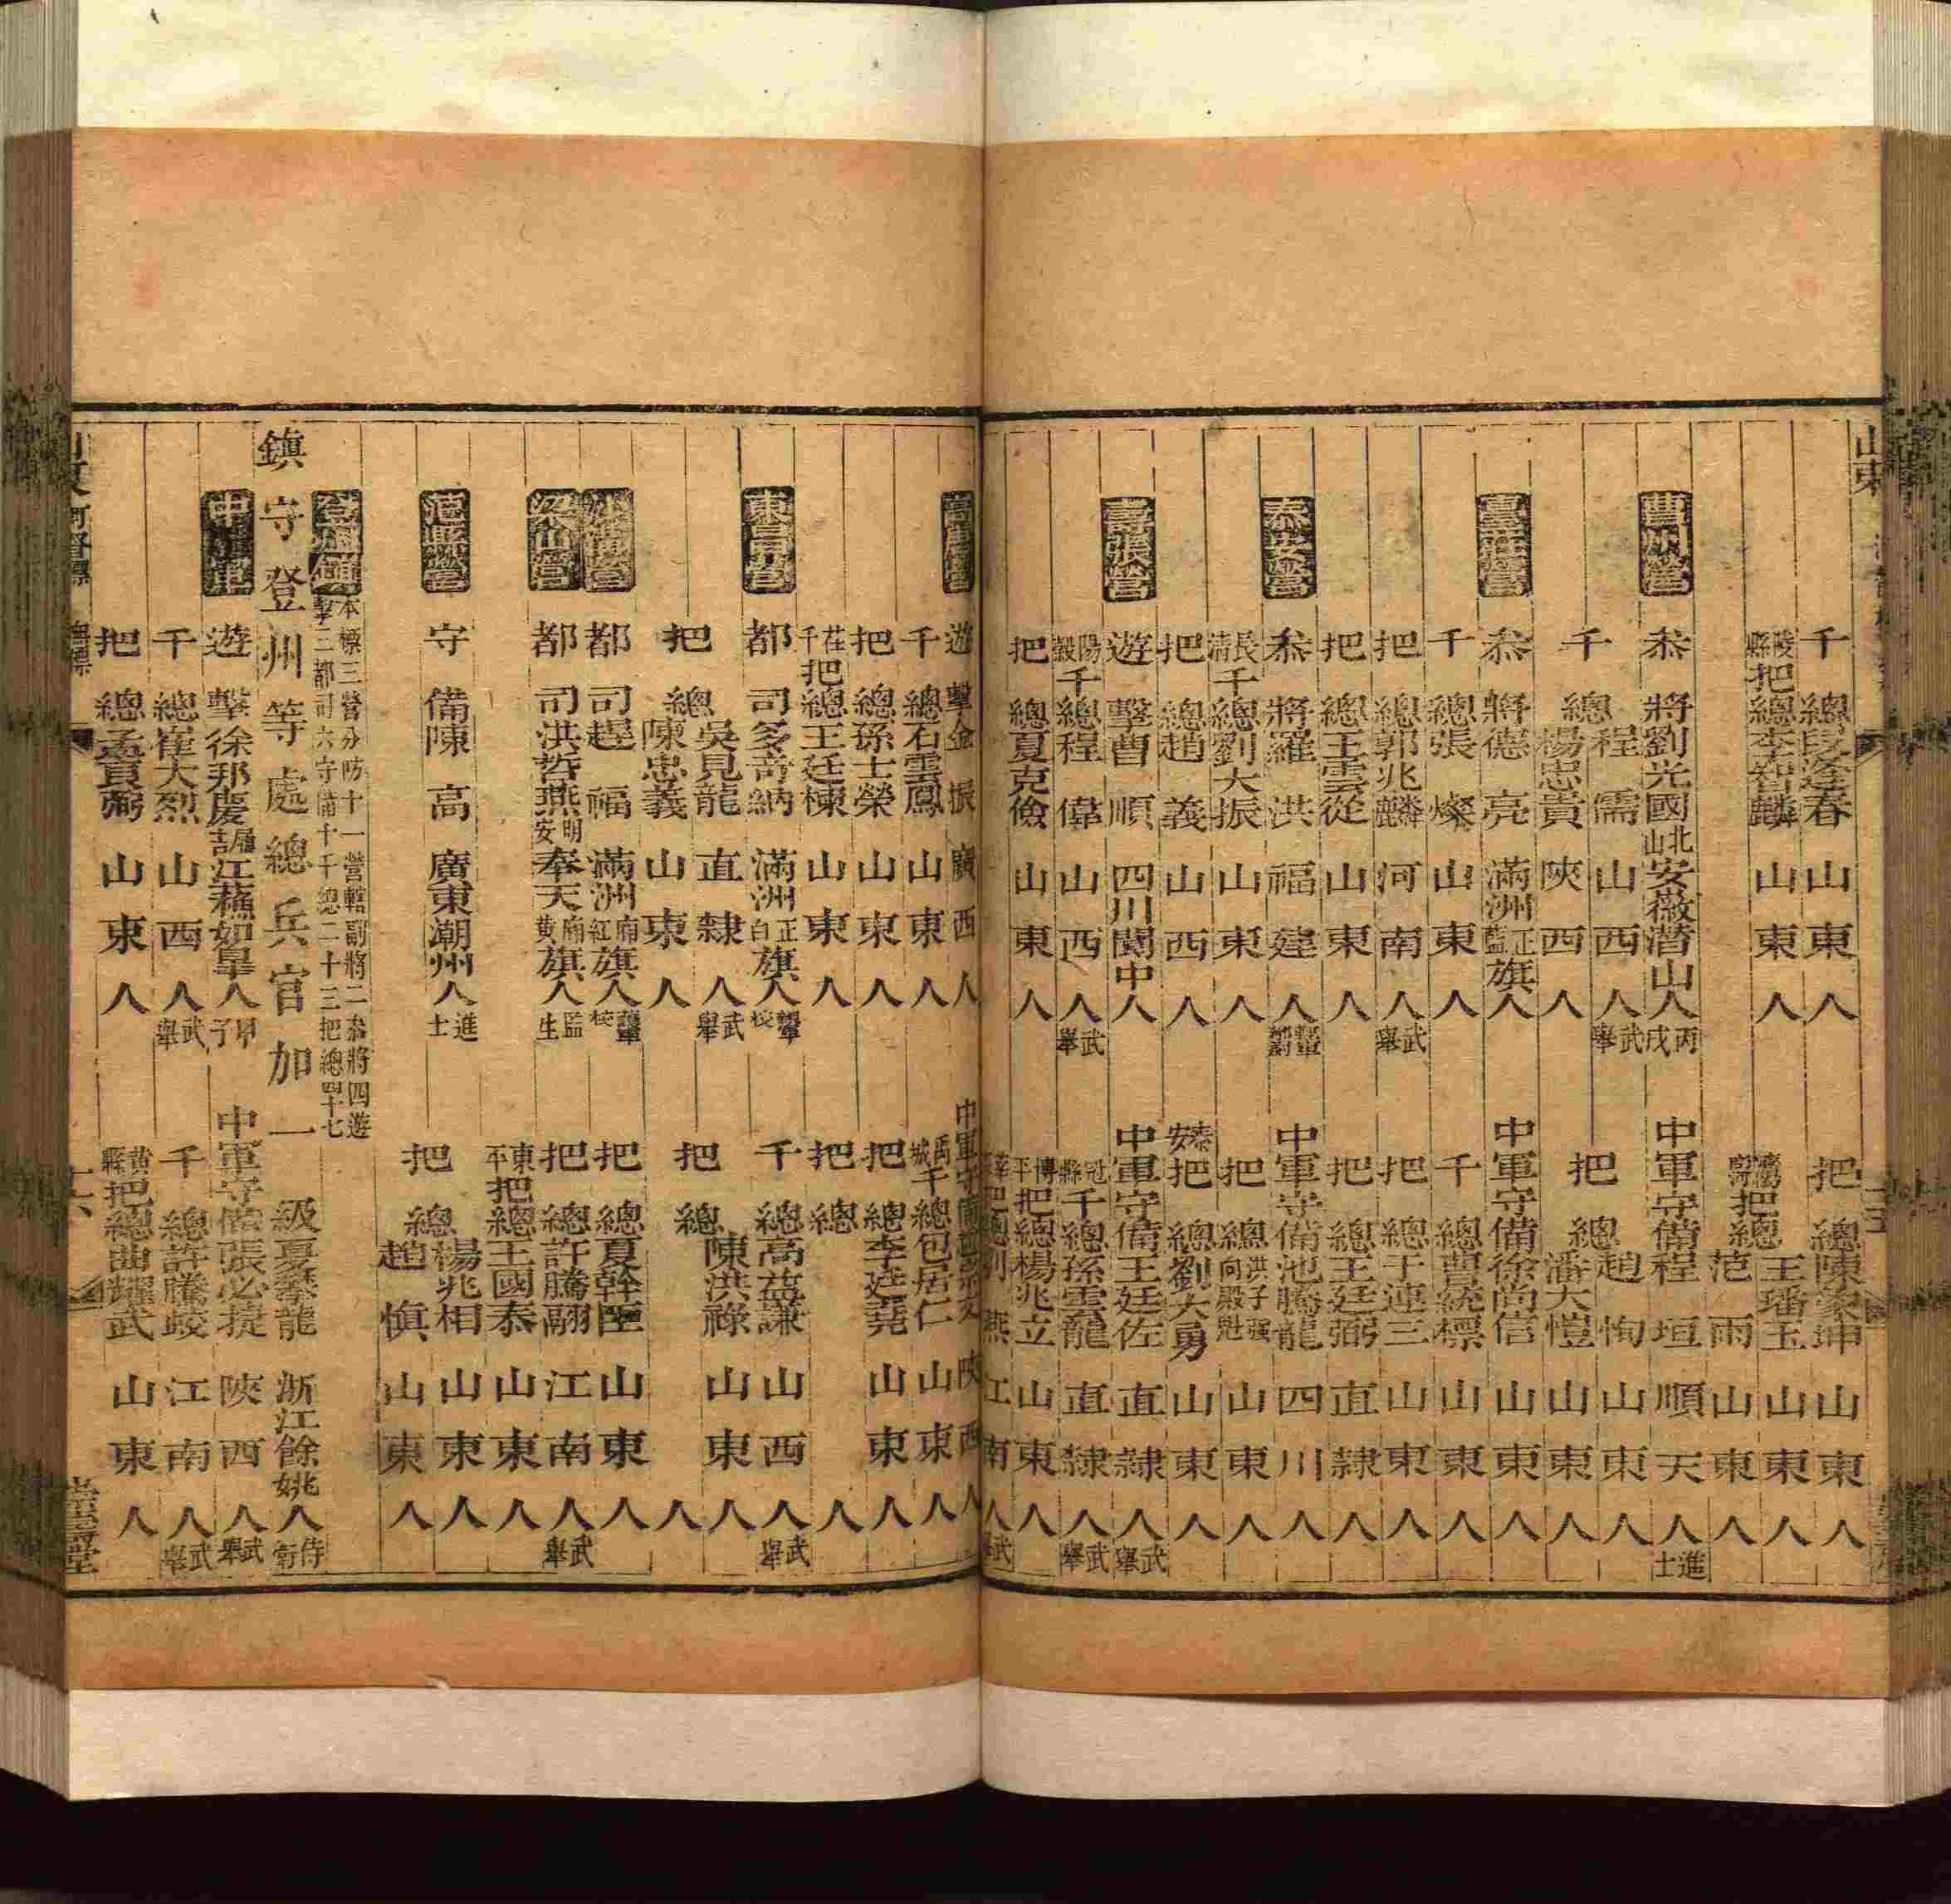 山東
千總段逢春 山東人
把總陳象坤 山東人
陵縣把總李智麟 山東人
把總 王璠玉 山東人
范雨 山東人
曹州營
叅將劉光國 北山 安薇潛山人 丙戌
中軍守備程垣 順天人 進士
千總 程儒 山西人 武舉
楊忠貴 陝西人
把總 趙恂 山東人
潘大愷 山東人
臺莊營
叅將德亮 滿洲正藍旗人
中軍守備徐尚信 山東人
千總張燦 山東人
千總曹統標 山東人
把總郭兆麟 河南人 武舉
把總于連三 山東人
把總王雲從 山東人
把總王廷弼 直隸人
泰安營
叅將羅洪 福建人
中軍守備池騰龍 四川人
長清千總劉大振 山東人
把總 洪子强 向殿魁 山東人
把總趙義 山西人
泰安把總劉大勇 山東人
壽張營
遊擊曹順 四川閬中人
中軍守備王廷佐 直隸人 武舉
陽穀千總程偉 山西人 武舉
冠縣千總孫雲龍 直隸人 武舉
把總夏克儉 山東人
博平把總楊兆立 山東人
莘把總劉燕 江南人 武舉
高唐營
遊擊金振 廣西人
中軍守備 陝西人
千總石雲鳳 山東人
禹城千總包居仁 山東人
把總孫士榮 山東人
把總李廷堯 山東人
茌千把總王廷棟 山東人
把總 人
東昌司營
都司多奇納 滿洲正白旗人
千總高益謙 山西人 武舉
把總 吳見龍 直隸人 武舉
陳忠義 山東人
把總 陳洪祿 山東人
人
都司趕福 滿洲廂紅旗人
把總夏幹臣 山東人
梁山營
都司洪哲燕 明安 奉天廂黃旗人 監生
把總許騰翮 江南人 武舉
東平把總王國泰 山東人
范縣營
守備陳高 廣東潮州人 進士
把總 楊兆相 山東人
趙慎 山東人
登州鎮
本標三營分防十一營轄副將二叅將四遊
擊二都司六守備十千總二十三把總四十七
鎮守登州等處總兵官加一級夏櫐龍 浙江餘姚人 侍衛
中軍
遊擊徐邦慶 江蘇如臯人 甲子
中軍守備張必捷 陝西人 武舉
千總崔大烈 山西人 武舉
千總許騰蛟 江南人 武舉
把總孟貢弼 山東人
黃縣把總曲耀武 山東人
十六